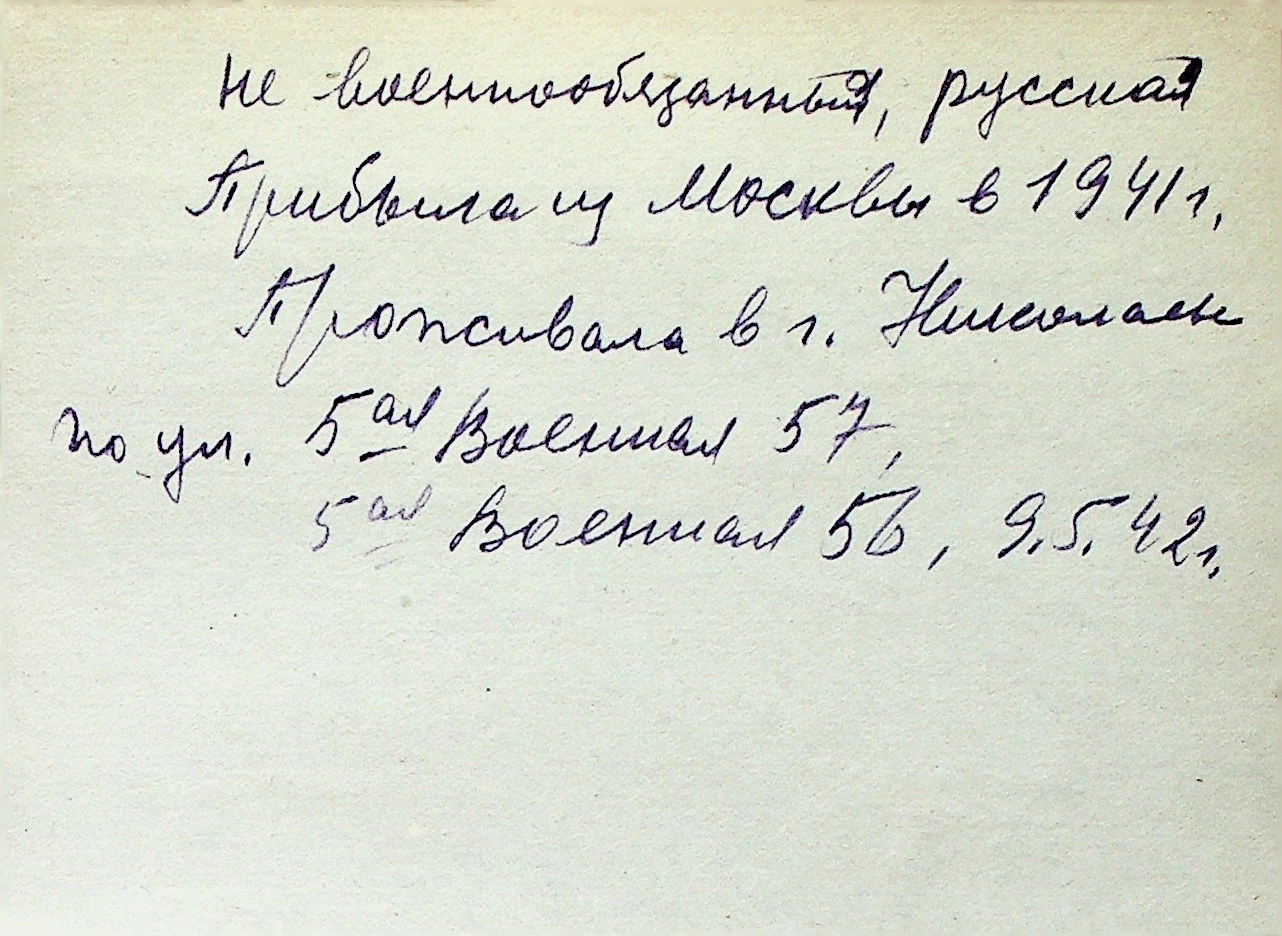 Не военнообязанный, русская
Прибыла из Москвы в 1941 г.
Проживала в г. Николаеве
по ул. 5ая Военная 57,
5ая Военная 56, 9.5.42 г.